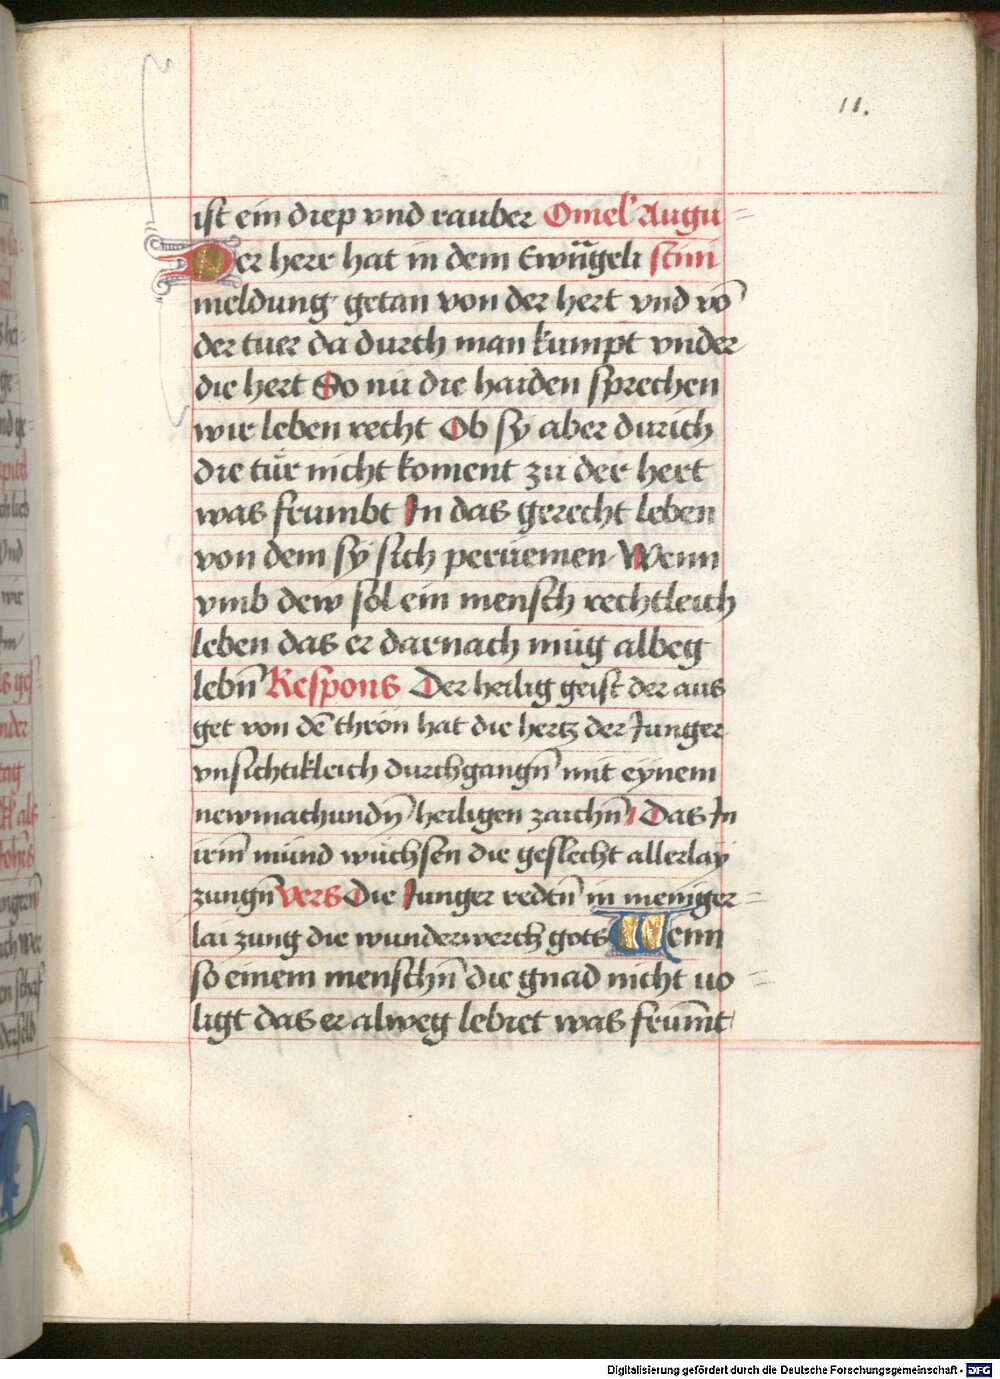 11.
ist ein diep vnd rauber Omel Augu=
Der herr hat in dem Ewãgeli stini
meldung getan von der hert vnd võ
der tuer da durch man kumpt vnder
die hert So nu die haiden sprechen
wir leben recht Ob sy aber durich
die tür nicht koment zu der hert
was frumbt In das gerecht leben
von dem sy sich perüemen Wenn
vmb dew sol ein mensch rechtleich
leben das er darnach müg albeg
lebn̄ Respons Der heilig geist der aus
get von dē thron hat die hertz der Junger
vnsichtikleich durchgangn̄ mit eynem
newmachundn̄ heiligen zaichn̄ Das In
irm̄ mund wüchsen die geslecht allerlay
zungn̄ Vers Die Junger redtn̄ in meniger=
lai zung die wunderwerch gots Wenn
so einem menschn̄ die gnad nicht uo=
ligt das er alweg lebret was frum̄t
Digitalisierung gefördert durch die Deutsche Forschungsgemeinschaft - DFG